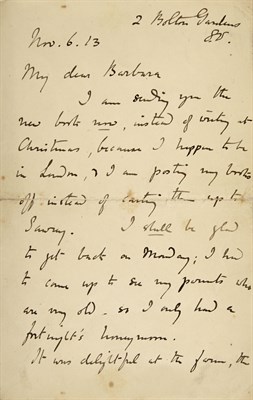 2 Bolton Gardens
Nov. 6. 13
My dear Barbara
I am sending you the
new book now, instead of waiting at
Christmas, because I happen to be
in London, & I am posting my books
off instead of carting them up to
Sawrey. I shall be glad
to get back on Monday; I had
to come up to see my parents who
are my old - so I only had a
fortnight's honeymoon.
It was delightful at the farm, the